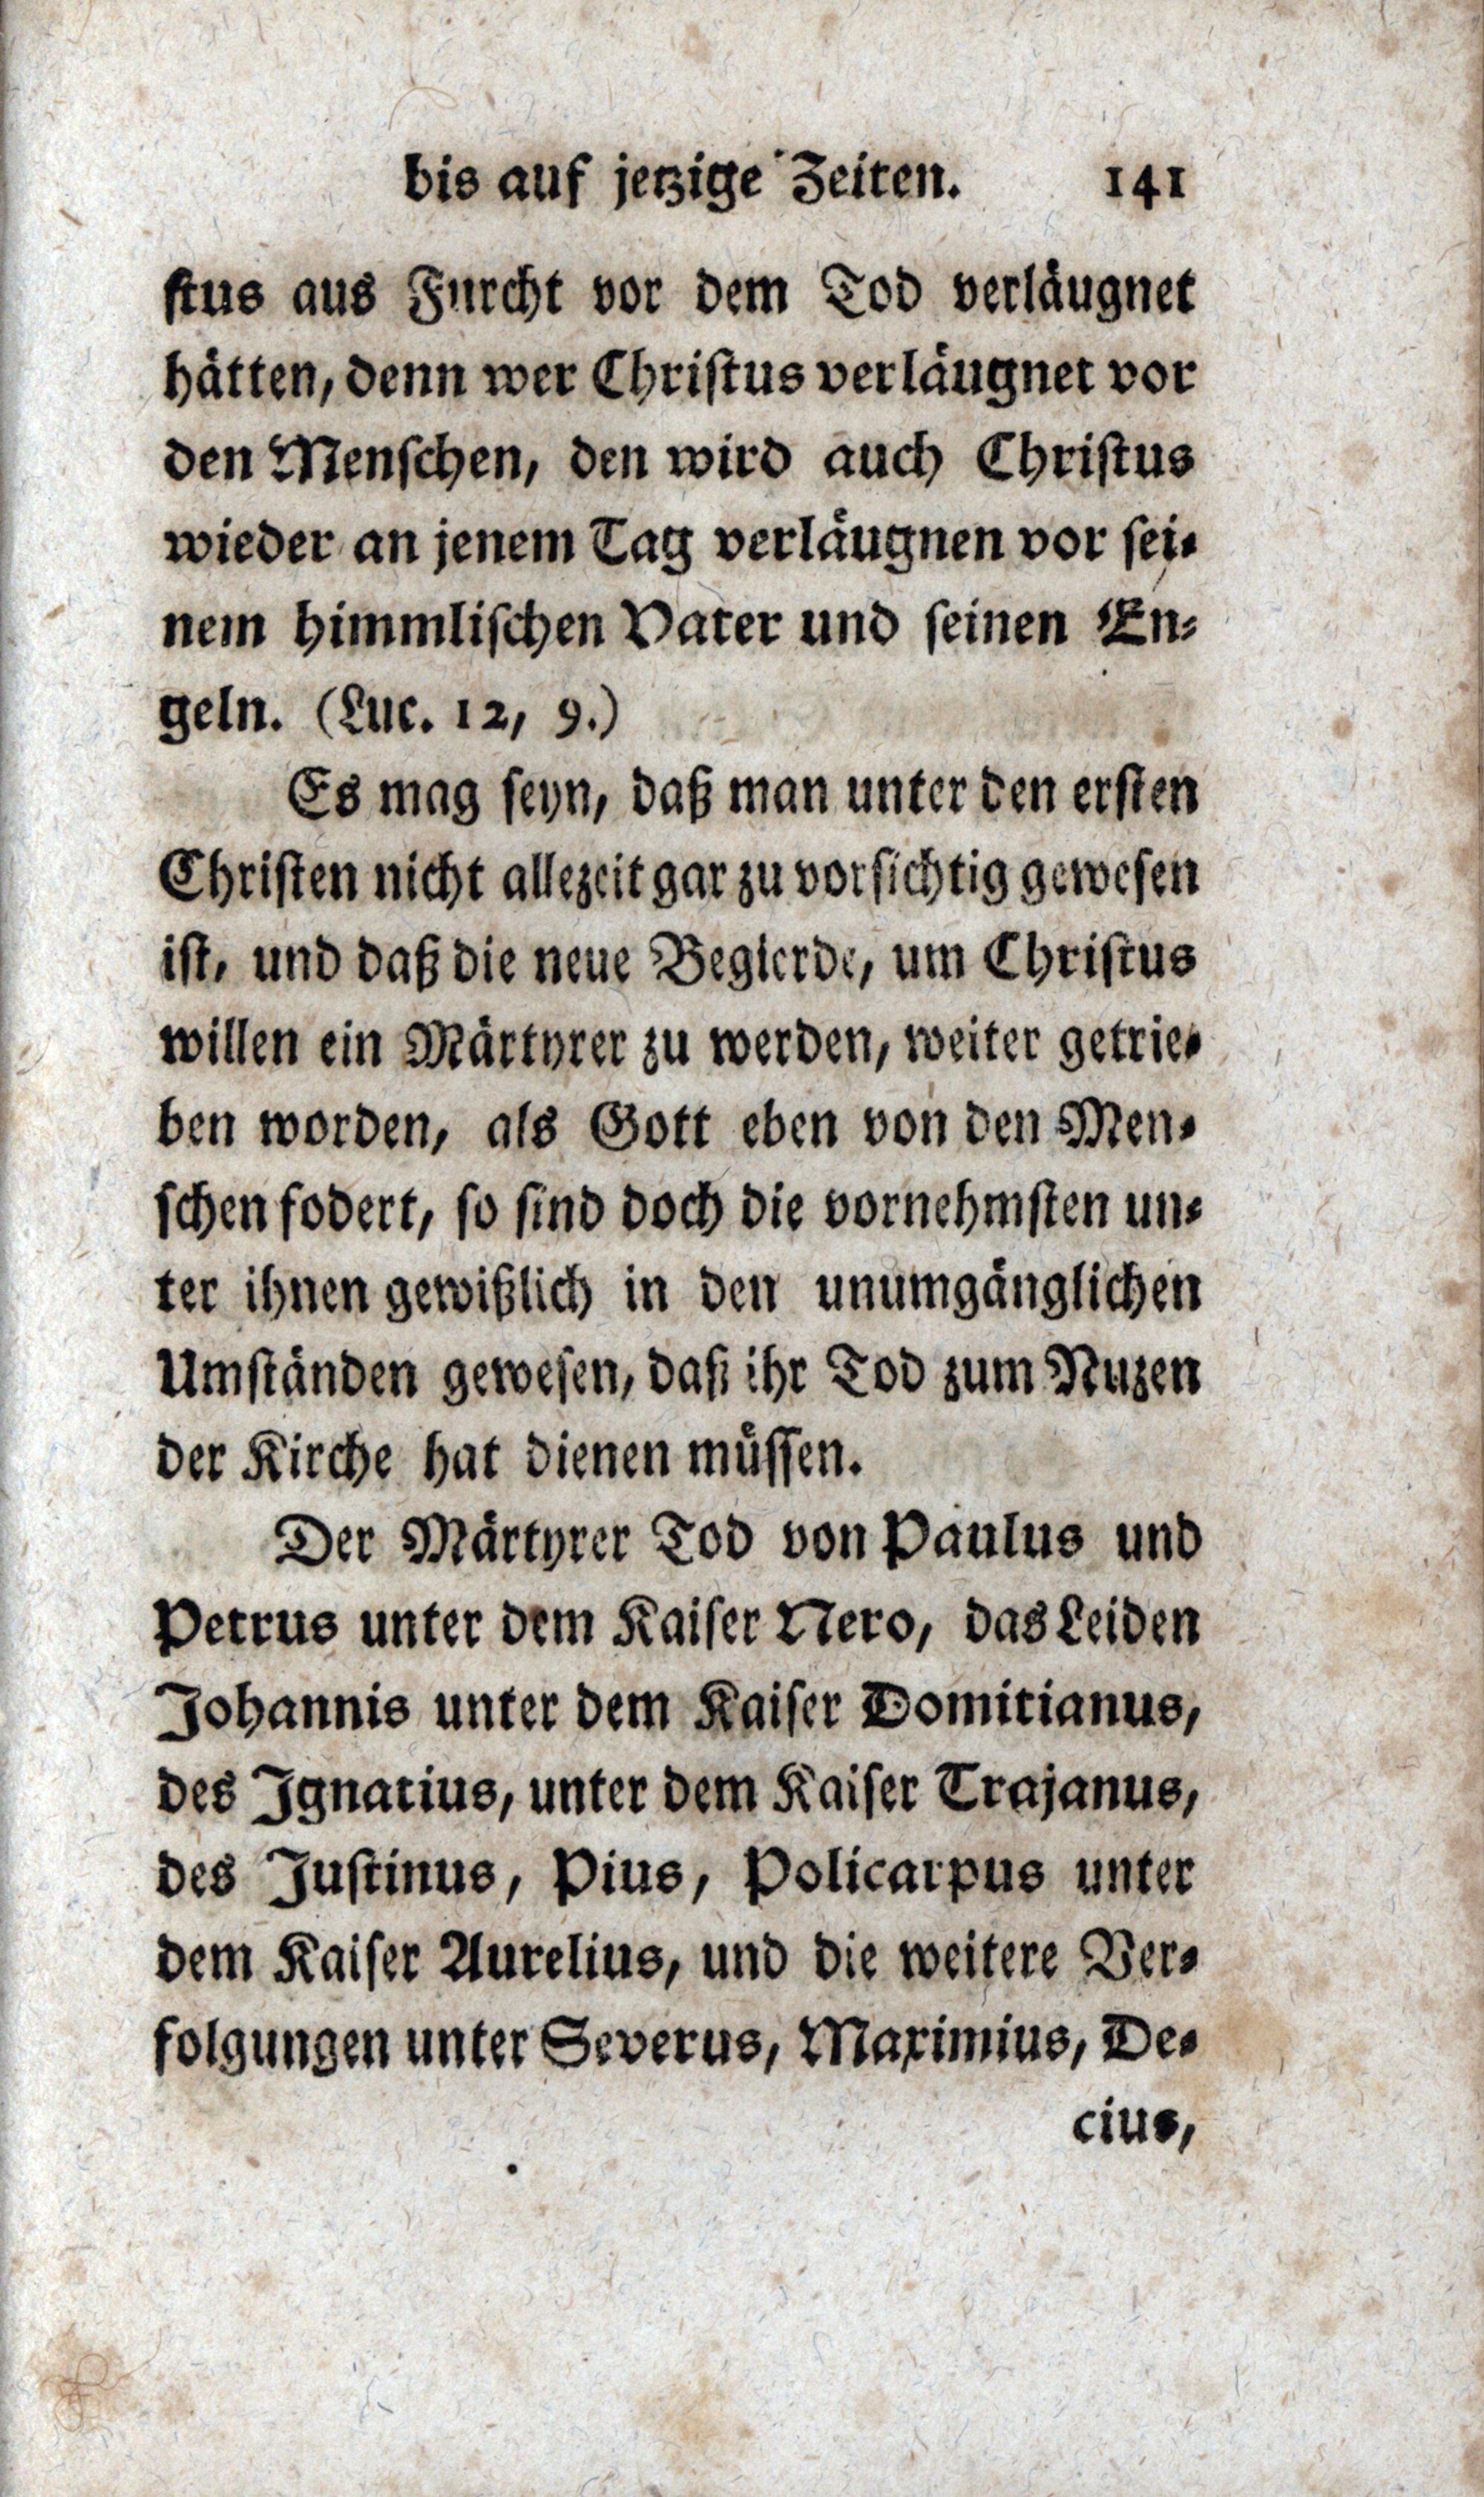 bis auf jetzige Zeiten. 141
stus aus Furcht vor dem Tod verläugnet
hätten, denn wer Christus verläugnet vor
den Menschen, den wird auch Christus
wieder an jenem Tag verläugnen vor sei-
nem himmlischen Vater und seinen En-
geln. (Luc. 12, 9.)
Es mag seyn, daß man unter den ersten
Christen nicht allezeit gar zu vorsichtig gewesen
ist, und daß die neue Begierde, um Christus
willen ein Märtyrer zu werden, weiter getrie-
ben worden, als Gott eben von den Men-
schen fodert, so sind doch die vornehmsten un-
ter ihnen gewißlich in den unumgänglichen
Umständen gewesen, daß ihr Tod zum Nuzen
der Kirche hat dienen müssen.
Der Märtyrer Tod von Paulus und
Petrus unter dem Kaiser Nero, das Leiden
Johannis unter dem Kaiser Domitianus,
des Ignatius, unter dem Kaiser Trajanus,
des Justinus, Pius, Policarpus unter
dem Kaiser Aurelius, und die weitere Ver-
folgungen unter Severus, Maximius, De-
cius,